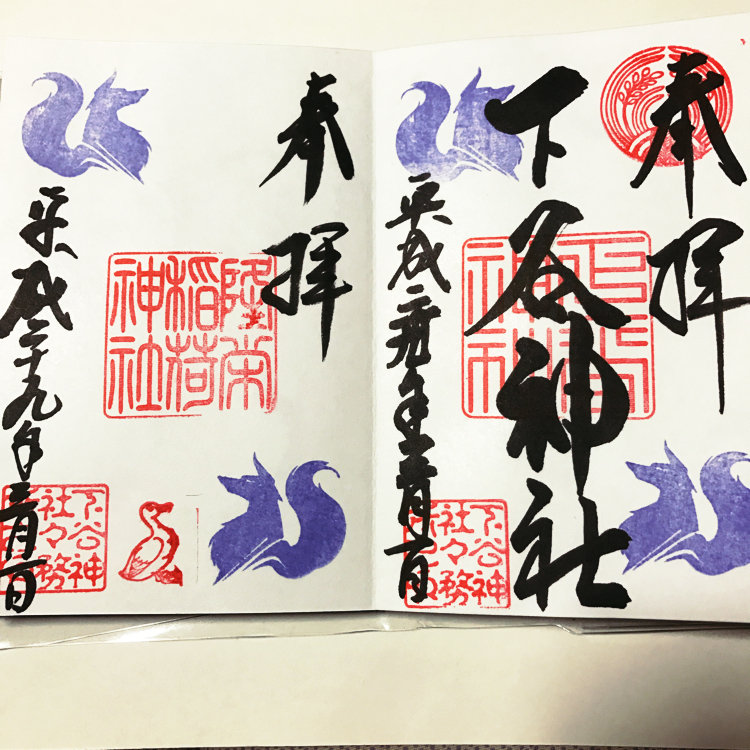 奉拝
下谷
神社
下谷神社
平成二十九年三月一日
下谷神
社々務
奉拝
隆栄
稲荷
神社
平成二十九年三月一日
下谷神
社々務